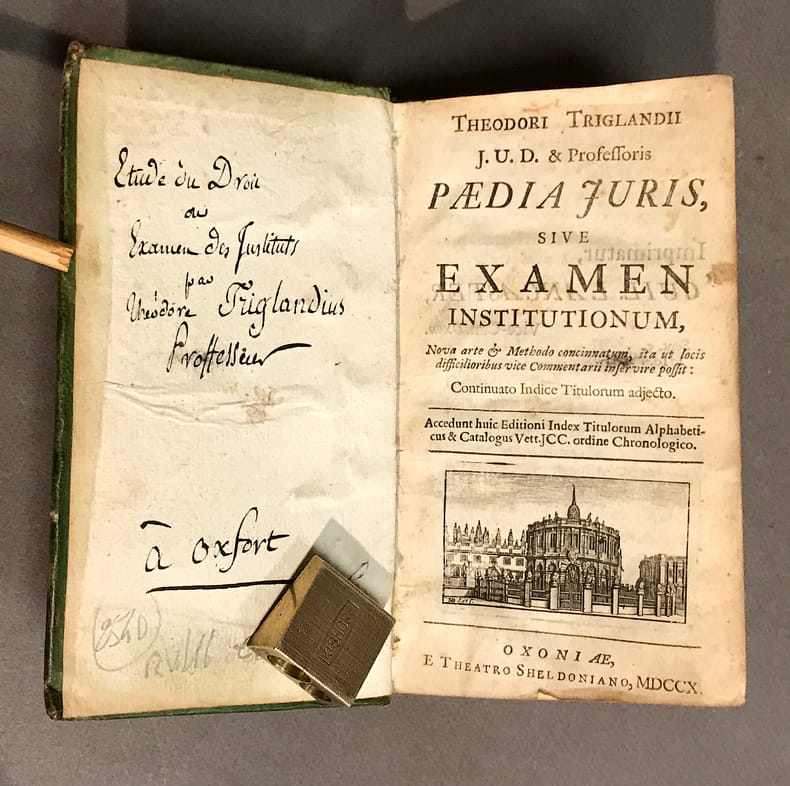 Etude du Droit
ou
Examen des Instituts
par
théodore Triglandius
Proffesseur
à oxfort
THEODORI TRIGLANDII
J. U. D. & Profeſſoris
PÆDIA JURIS,
SIVE
EXAMEN
INSTITUTIONUM,
Nova arte & Methodo concinnatum, ita ut locis
difficilioribus vice Commentarii inſervire poſſit:
Continuato Indice Titulorum adjecto.
Accedunt huic Editioni Index Titulorum Alphabeti-
cus & Catalogus Vett. JCC. ordine Chronologico.
OXONIÆ,
E THEATRO SHELDONIANO, MDCCX.